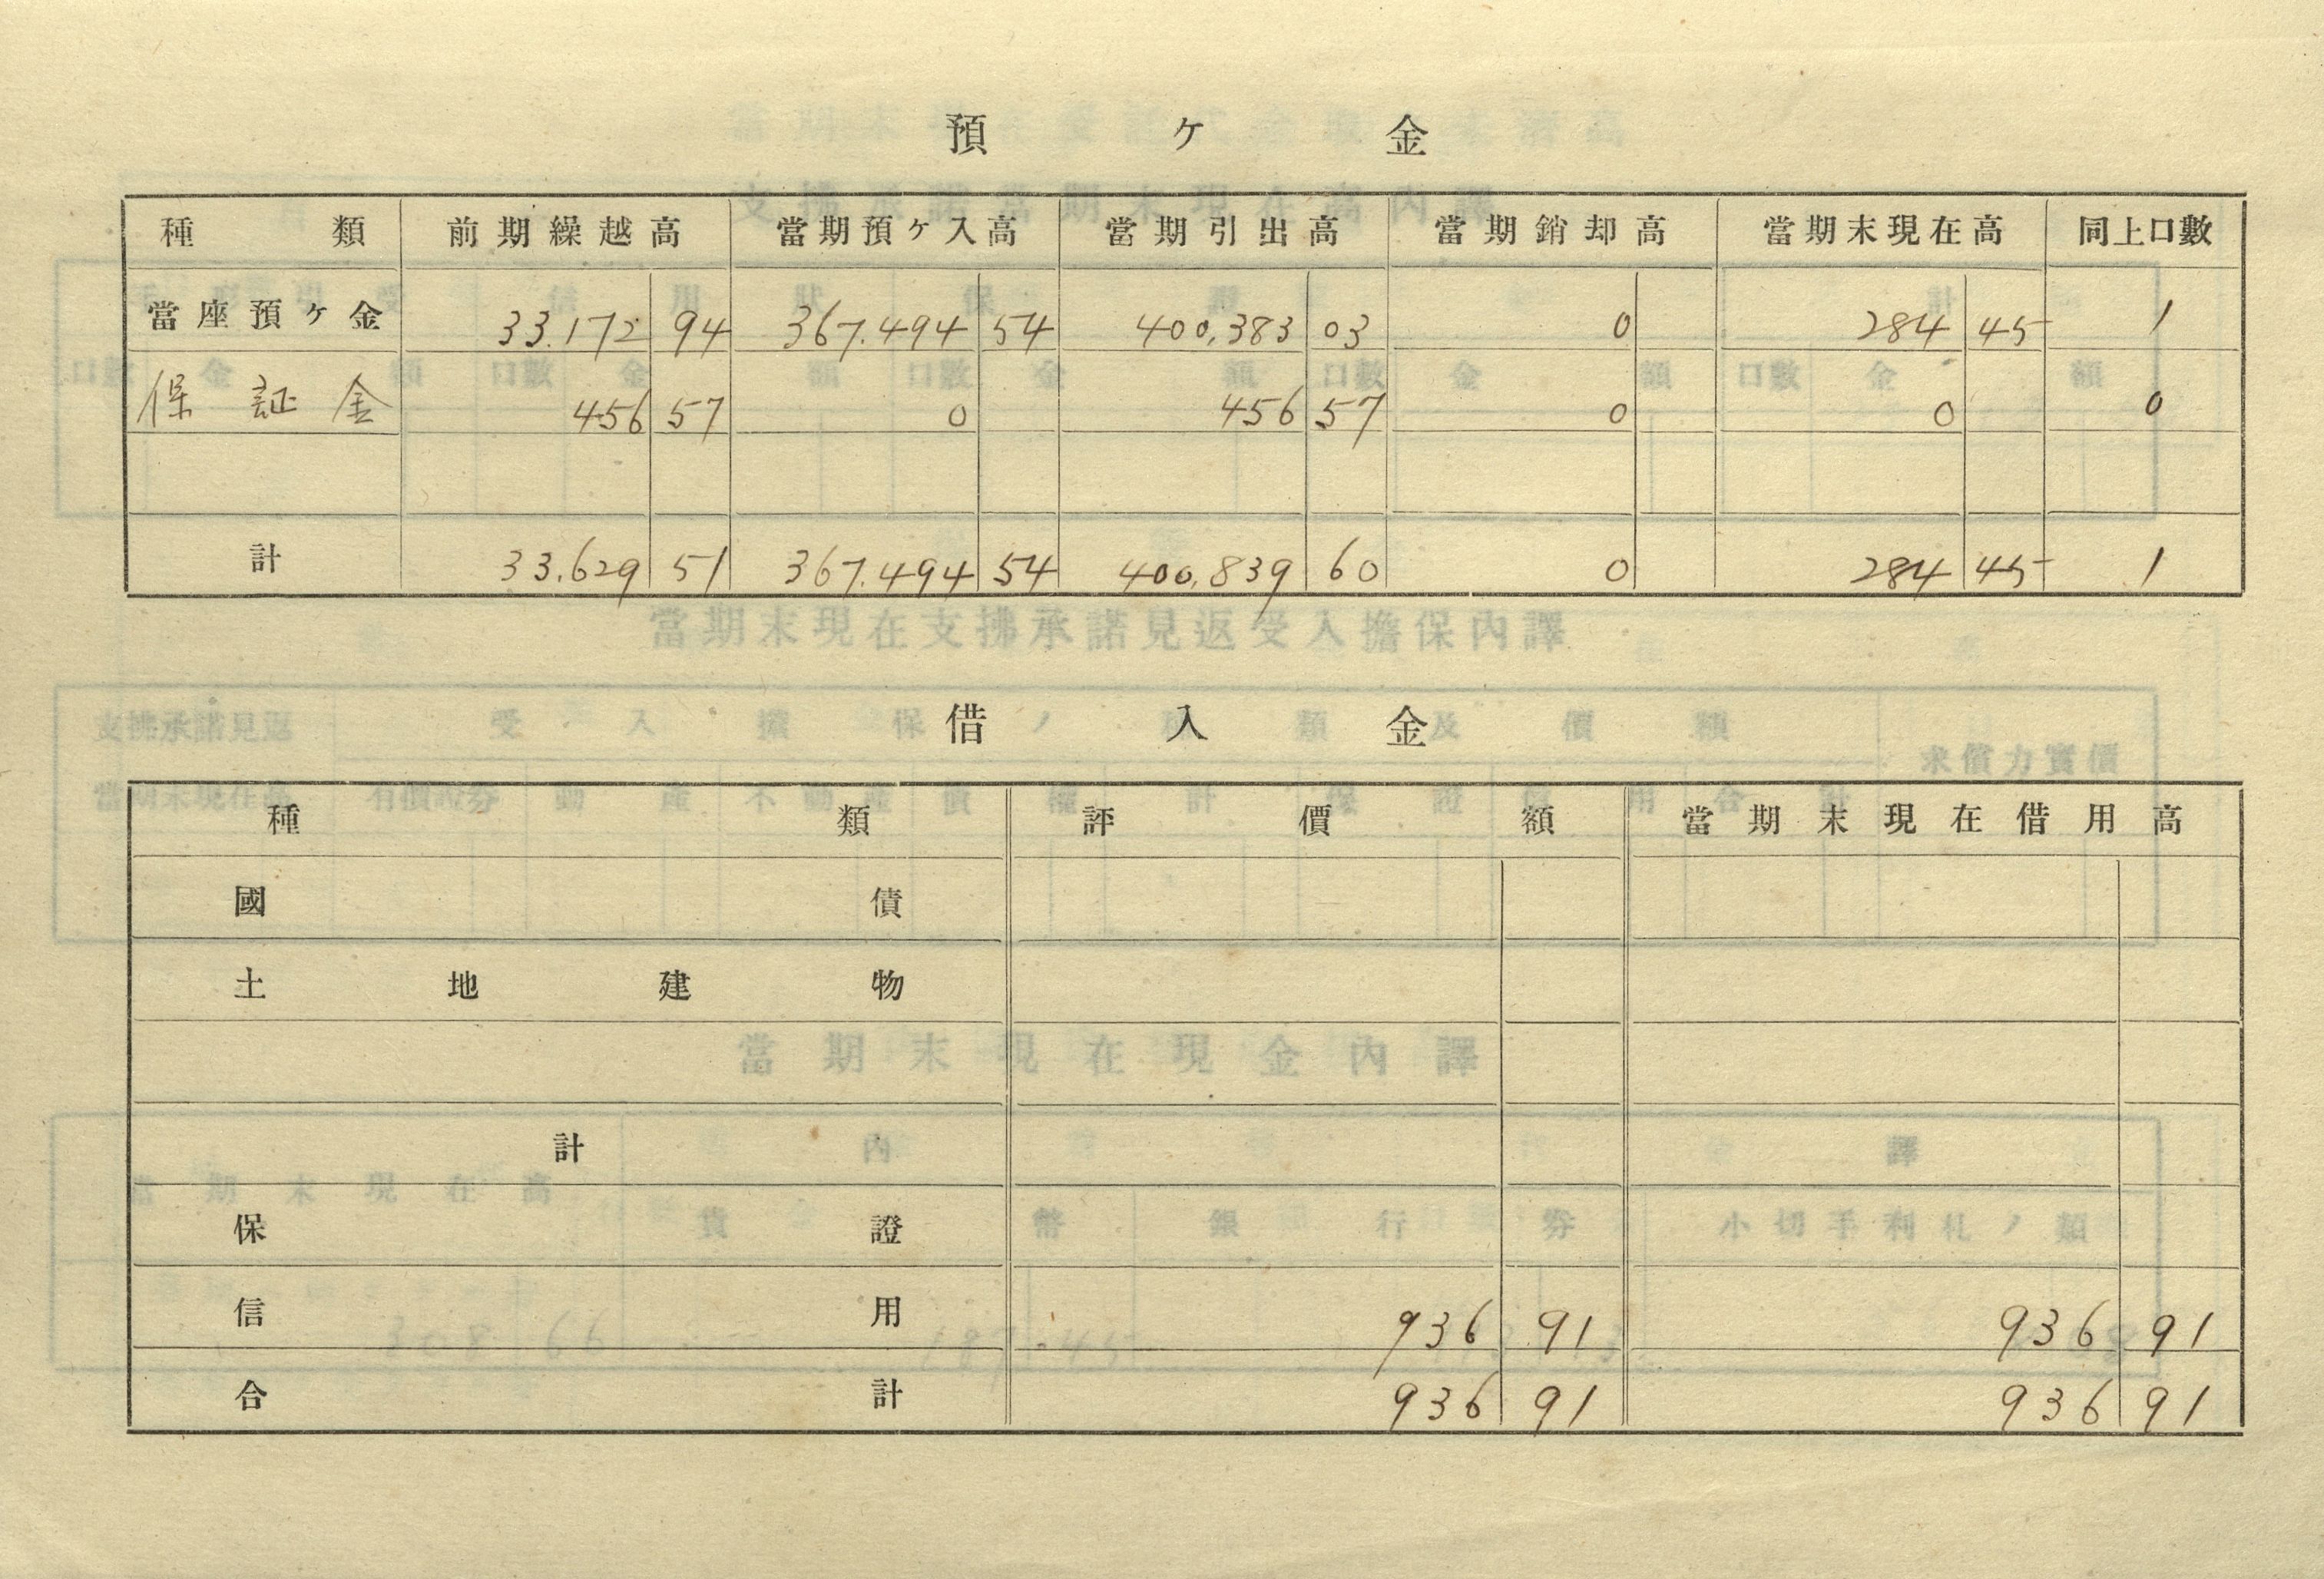 預ケ金
種類 前期繰越高 當期預ケ入高 當期引出高 當期銷却高 當期末現在高 同上口數
當座預ケ金 33.172 94 367.494 54 400,383 03 0 284 45 1
保証金 456 57 0 456 57 0 0 0
計 33.629 51 367.494 54 400,839 60 0 284 45 1
借入金
種類 評價額 當期末現在借用高
國債
土地建物
計
保證
信用 936 91 936 91
合計 936 91 936 91